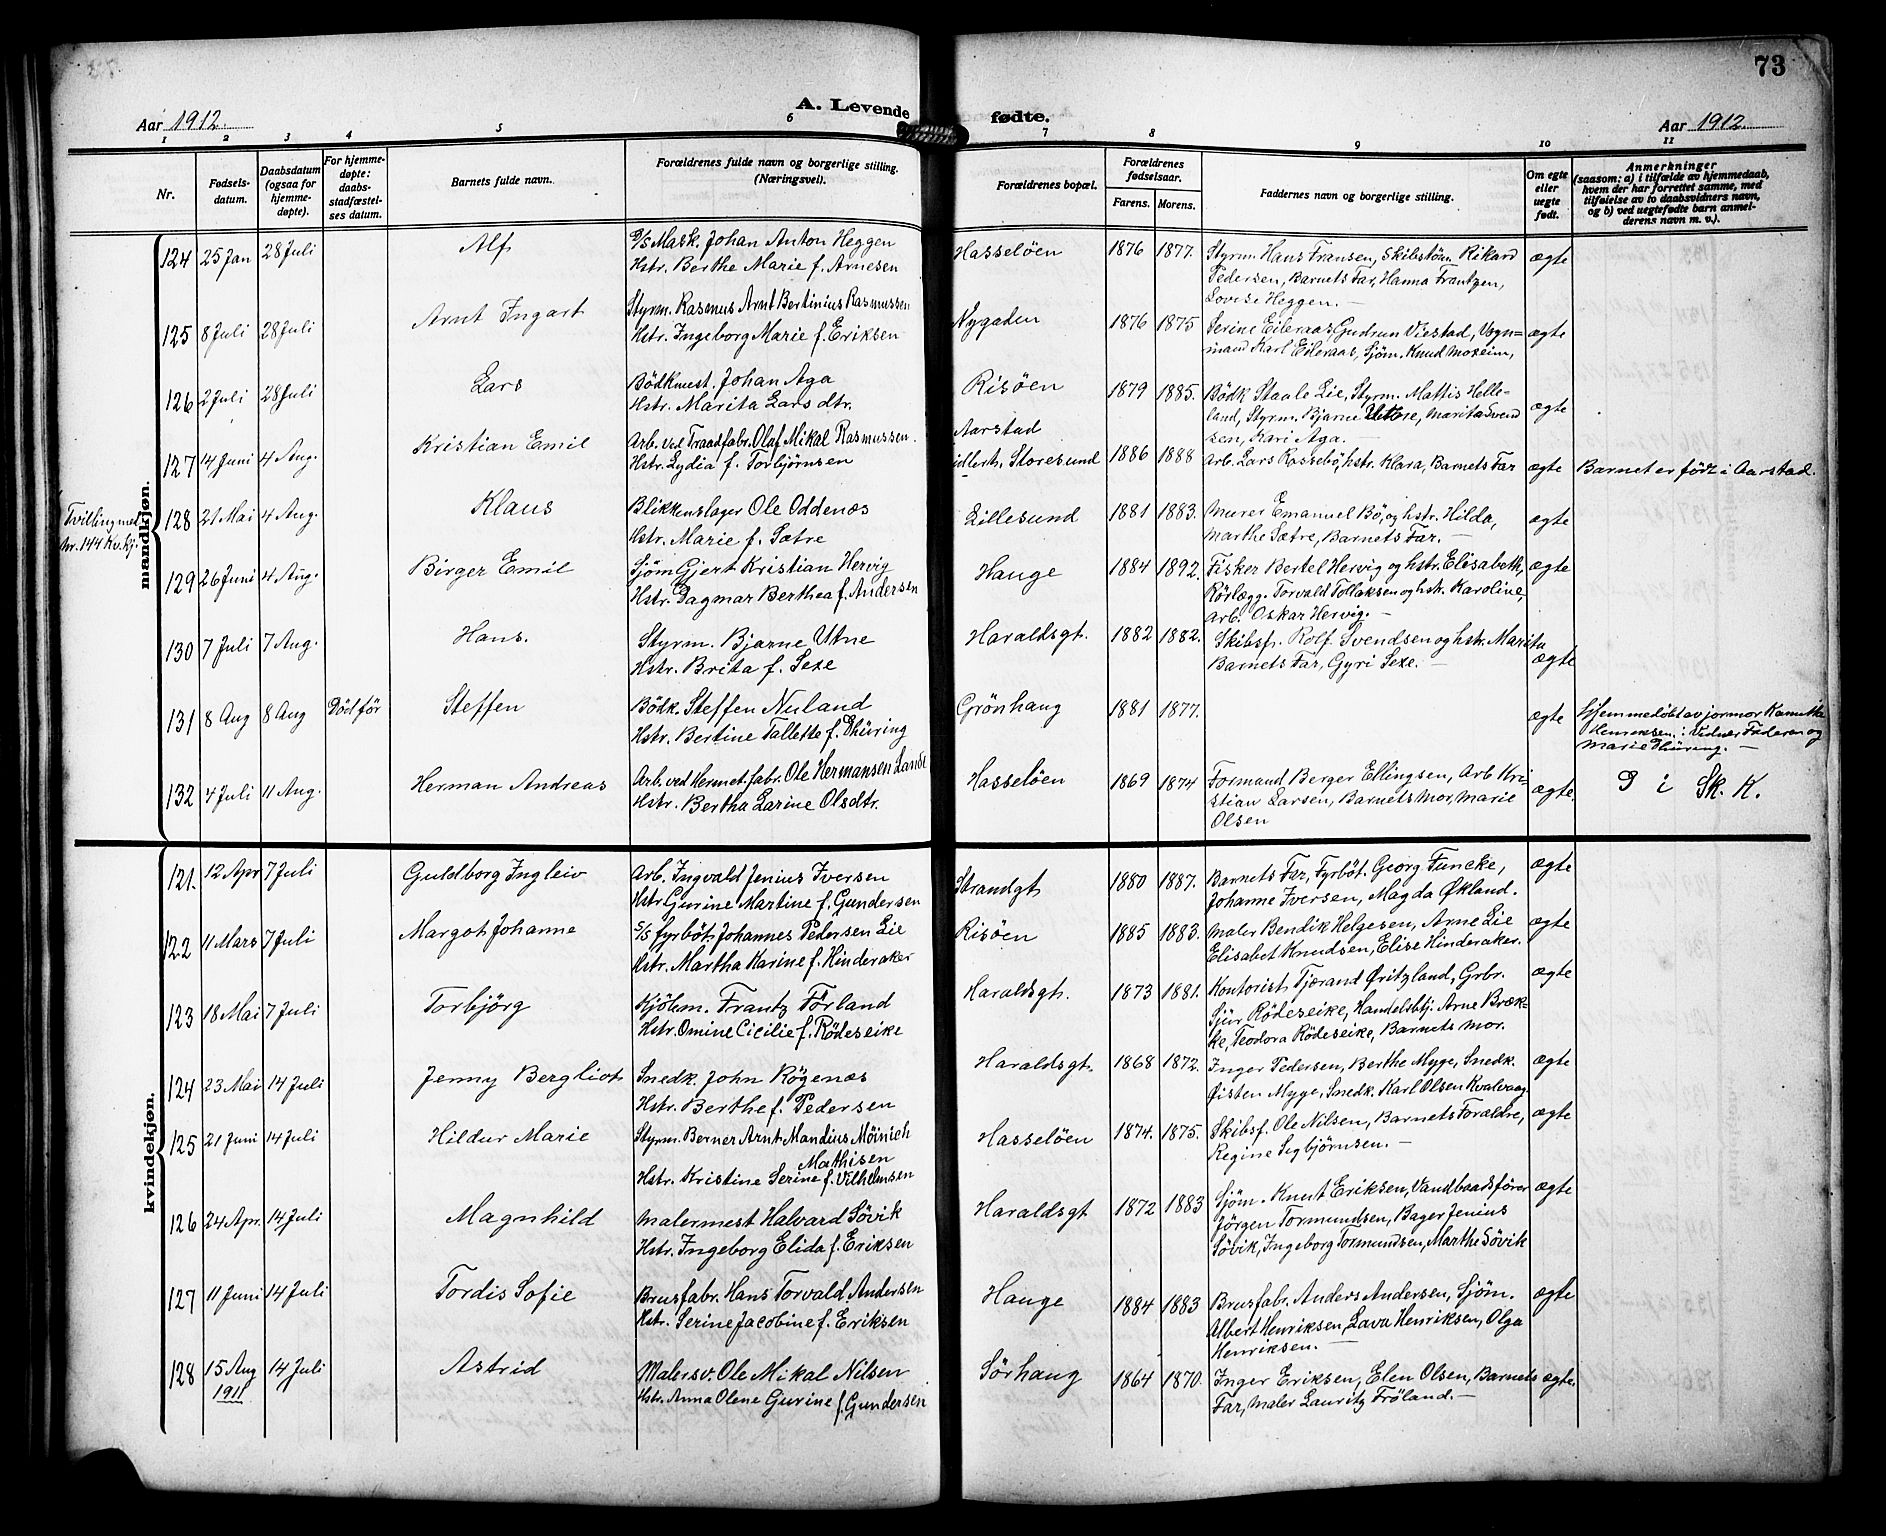 73
A. Levende fødte.
Aar 1912.
Aar 1912.
1 2 3 4 5 6 7 8 9 10 11
Nr.
Fødsels-
datum.
Daabsdatum
(ogsaa for
hjemme-
døpte).
For hjemme-
døpte:
daabs-
stadfæstel-
ses datum.
Barnets fulde navn.
Forældrenes fulde navn og borgerlige stilling.
(Næringsvei).
Forældrenes bopæl.
Forældrenes
fødselsaar.
Farens. Morens.
Faddernes navn og borgerlige stilling.
Om egte
eller
uegte
født.
Anmerkninger
(saasom: a) i tilfælde av hjemmedaab,
hvem der har forrettet samme, med
tilføielse av to daabsvidners navn,
og b) ved uegtefødte barn anmel-
derens navn m. v.).
mandkjøn.
124 25 Jan 28 Juli Alf D/S Mask. Johan Anton Heggen
Hstr. Berthe Marie f. Arnesen
Hasseløen 1876 1877. Styrm. Hans Fransen, Skibstøm. Rikard
Pedersen, Barnets Far, Hanna Frantzen,
Lovise Heggen. —
ægte
125 8 Juli 28 Juli Arnt Ingart Styrm. Rasmus Arnt Bertinius Rasmussen
Hstr. Ingeborg Marie f. Eriksen
Nygaden 1876 1875 Serine Eileraas, Gudrun Viestad, Vogn-
mand Karl Eileraas, Sjøm. Knud Moseim,
ægte
126 2 Juli 28 Juli Lars Bödkmest. Johan Aga
Hstr. Marita Lars dtr.
Risöen 1879 1885. Bödk Staale Lie, Styrm. Mattis Helle-
land, Styrm. Bjarne Utne, Marita Svend
sen, Kari Aga. —
ægte
127 14 Juni 4 Aug. Kristian Emil Arb. ved Traadfabr. Olaf Mikal Rasmussen.
Hstr. Lydia f. Torbjörnsen
Aarstad
idlertk. Storesund 1886 1888 Arb. Lars Rossebö, hstr. Klara, Barnets Far ægte Barnet er født i Aarstad.
Tvilling med
nr. 144 Kv.kj.
128 21 Mai 4 Aug. Klaus Blikkenslager Ole Oddenæs
Hstr. Marie f. Sætre
Lillesund 1881 1883. Murer Emanuel Bö, og hstr. Hilda,
Marthe Sætre, Barnets Far. —
ægte
129 26 Juni 4 Aug. Birger Emil Sjöm Gjert Kristian Hervig
Hstr. Dagmar Berthea f. Andersen
Hauge 1884 1892. Fisker Bertel Hervig og hstr. Elisabeth,
Rörlægg. Torvald Tollaksen og hstr. Karoline,
Arb. Oskar Hervig. —
ægte
130 7 Juli 7 Aug. Hans. Styrm. Bjarne Utne
Hstr. Brita f. Sexe
Haraldsgt. 1882 1882. Skibsf. Rolf Svendsen og hstr. Marita
Barnets Far, Gyri Sexe. —
ægte
131 8 Aug 8 Aug Död för Steffen Bödk. Steffen Nuland
Hstr. Bertine Tallette f. Thüring
Grönhaug 1881 1877. ægte Hjemmedöbt av jormor
Henriksen. Vidner Faderen og
Marie Thüring. —
132 4 Juli 11 Aug. Herman Andreas Arb. ved Hermet. fabr. Ole Hermansen Lande
Hstr. Bertha Larine Olsdtr.
Hasselöen 1869 1874 Formand Berger Ellingsen, Arb Kri-
stian Larsen, Barnets Mor, Marie
Olsen
ægte. i Sk. K.
kvindekjøn.
121. 12 Apr 7 Juli Guldborg Ingleiv Arb. Ingvald Jenius Iversen
Hstr Gurine Martine f. Gundersen
Strandgt 1880 1887. Barnets Far, Fyrböt. Georg Funcke,
Johanne Iversen, Magda Økland.
ægte
122 11 Mars 7 Juli Margot Johanne S/S fyrböt. Johannes Pedersen Lie
Hstr. Martha Karine f. Hinderaker
Risöen 1885 1883. Maler Bendik Helgesen, Arne Lie
Elisabet Knudsen, Elise Hinderaker.
ægte
123 18 Mai 7 Juli Torbjörg Kjöbm. Frantz Förland
Hstr. Omine Cicilie f. Rödeseike
Haraldsgt. 1873 1881. Kontorist Tjærand Øritzland, Grbr.
Sjur Rödeseike, Handelsbtj. Arne Bræk-
ke, Teodora Rödeseike, Barnets Mor.
ægte
124 23 Mai 14 Juli Jenny Bergliot Snedk. John Røgenæs
Hstr. Berthe f. Pedersen
Haraldsgt. 1868 1872. Inger Pedersen, Berthe Myge, Snedk.
Øisten Myge, Snedk. Karl Olsen Kvalvaag
ægte
125 21 Juni 14 Juli Hildur Marie Styrm. Berner Arnt Mandius Möinich
Mathisen
Hstr. Kristine Serine f. Vilhelmsen
Hasselöen 1874. 1875. Skibsf. Ole Nilsen, Barnets Forældre,
Regine Sigbjörnsen. —
ægte
126 24 Apr. 14 Juli Magnhild Malermest Halvard Sövik
Hstr. Ingeborg Elida f. Eriksen
Haraldsgt 1872 1883 Sjöm. Knut Eriksen, Vandbaadsförer
Jörgen Tormundsen, Bager Jenius
Sövik, Ingeborg Tormundsen, Marthe Sövik
ægte
127 11 Juni 14 Juli Tordis Sofie Brusfabr. Hans Torvald Andersen
Hstr. Serine Jacobine f. Eriksen
Hauge 1884 1883 Brusfabr. Anders Andersen, Sjöm.
Albert Henriksen, Lava Henriksen, Olga
Henriksen. —
ægte
128 15 Aug
1911
14 Juli Astrid Malersv. Ole Mikal Nilsen
Hstr. Anna Olene Gurine f. Gundersen
Sörhaug 1864 1870. Inger Eriksen, Elen Olsen, Barnets
Far, Maler Lauritz Fröland. —
ægte.